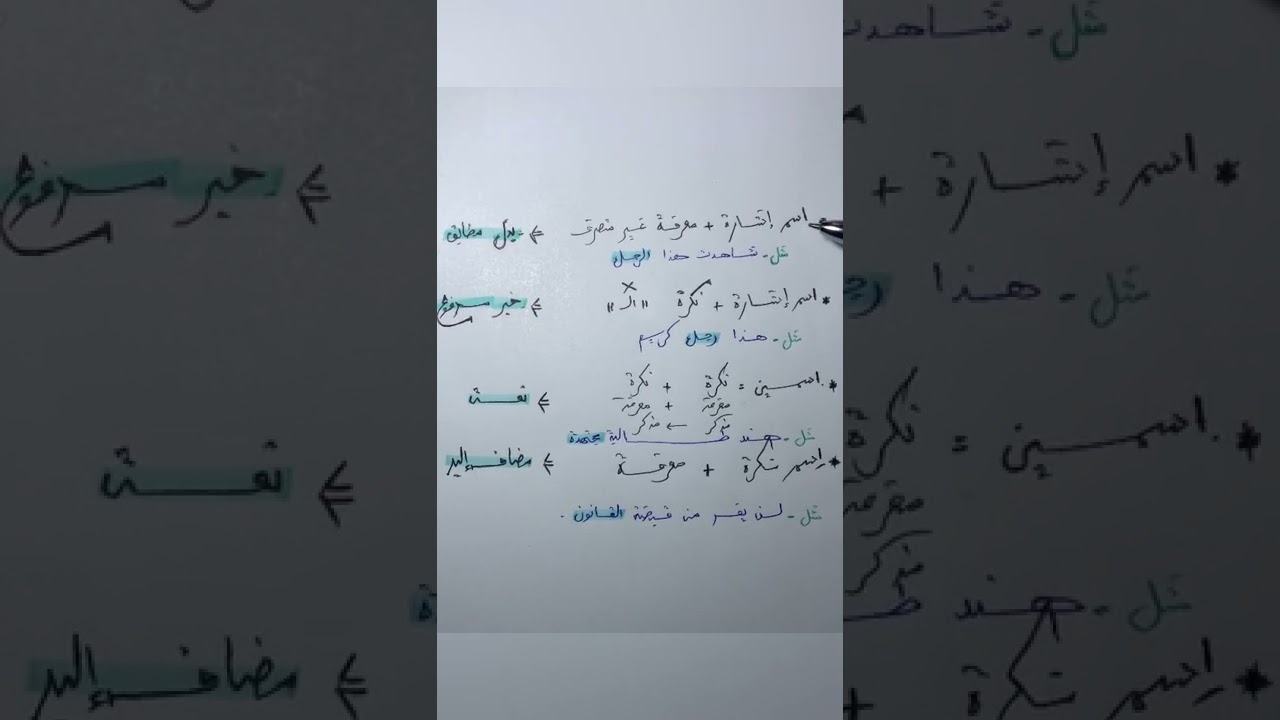 * اسم إشارة + معرفة غير متصرف ⇐ بدل مطابق
مثل - شاهدت هذا الرجل
* اسم إشارة + نكرة "الـ" X ⇐ خبر مرفوع
مثل - هذا رجل كريم
* اسمين = نكرة + نكرة ⇐ نعت
معرفة + معرفة
مذكر ← مذكر
مثل - هند طالبة مجتهدة
* اسم نكرة + معرفة ⇐ مضاف إليه
مثل - لن يفر من قبضة القانون .